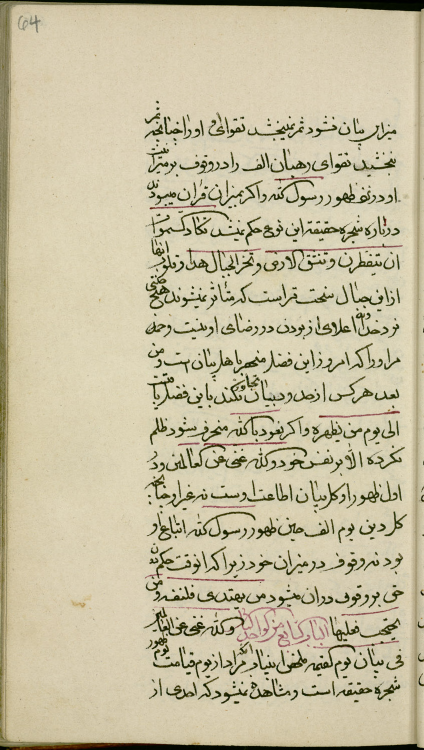 64
میزان بیان نشود ثمر نمیبخشد تقوای او را چنانچه ثمر
نبخشید تقوای رهبان الف را در وقوف بر میزان
او در نزد ظهور رسول الله و اگر بمیزان قران میبود
درباره شجره حقیقت این نوع حکم نمیشد تکاد السموات
ان یتفطرن و تنشق الارض و تخر الجبال هدا و قلوب
از این جبال سخت تر است که متأثر نمیشوند هیچ جنتی
نزد خدا اعلای از بودن در رضای او نیست و حمد
مر او را که امروز این فضل منحصر باهل بیان است و من
بعد هر کس از حدود بیان تجاوز نکند باین فضل
الی یوم من یظهره و اگر نعوذ بالله منحرف شود ظلم
نکرده الا بر نفس خود و الله غنی عن العالمین و در
اول ظهور او کل بیان اطاعت اوست نه غیر او چنانچه
کل دین یوم الف حین ظهور رسول الله اتباع او
بود نه وقوف در میزان خود زیرا که انوقت حکم
حق بر وقوف در ان میشود من یهتدی فلنفسه و من
یحتجب فعلیها و الله غنی عن العالمین
فی بیان یوم القیمة ملخص این باب انکه مراد از یوم قیامت یوم ظهور
شجره حقیقت است و مشاهده نمیشود که احدی از